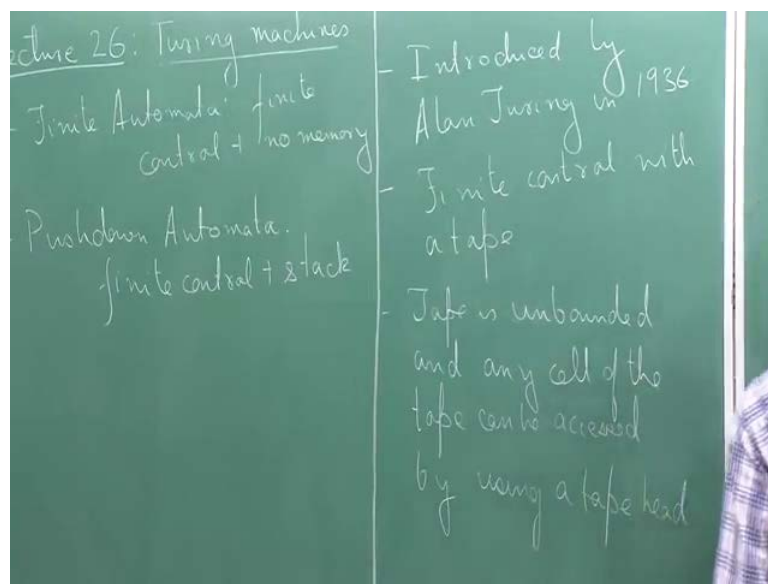 ecture 26: Turing machines
- Finite Automata: finite
control + no memory
- Pushdown Automata.
finite control + stack
- Introduced by
Alan Turing in 1936
- Finite control with
a tape
- Tape is unbounded
and any cell of the
tape can be accessed
by using a tape head